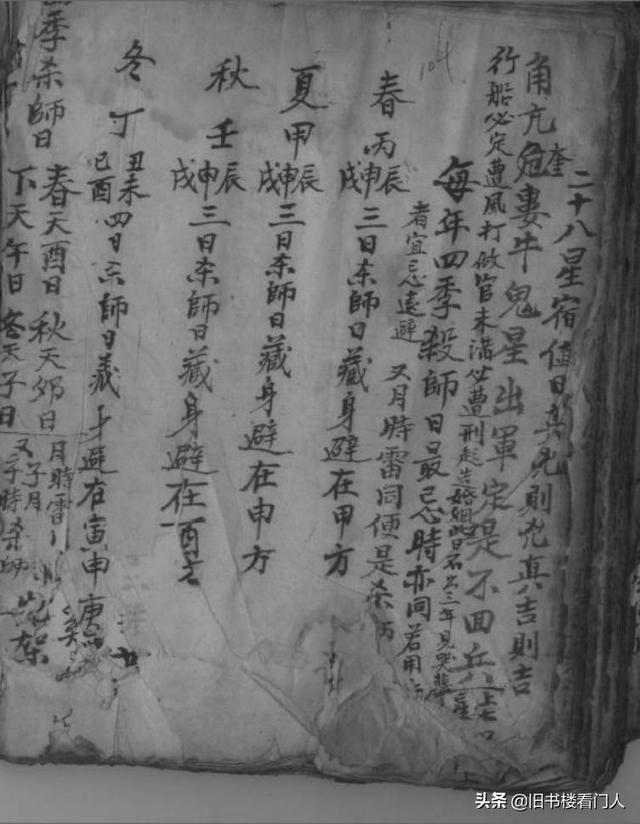 二十八星宿值日真兇則兇真吉則吉
角亢奎危婁牛鬼星出軍定是不回兵
行船必定遭風打做官未滿必遭刑起造婚姻此日不出三年見哭
每年四季殺師日最忌時亦同若用
者宜忌遠避 又月時雷同便是杀
春丙辰申戌三日杀師日藏身避在甲方
夏甲辰申戌三日杀師日藏身避在申方
秋壬辰申戌三日杀師日藏身避在酉
冬丁丑未己酉四日杀師日藏身避在寅申庚
四季杀師日
春天酉日 秋天卯日 月時雷
下天午日 冬天子日 又子月子時杀師
104
头条 @旧书楼看门人